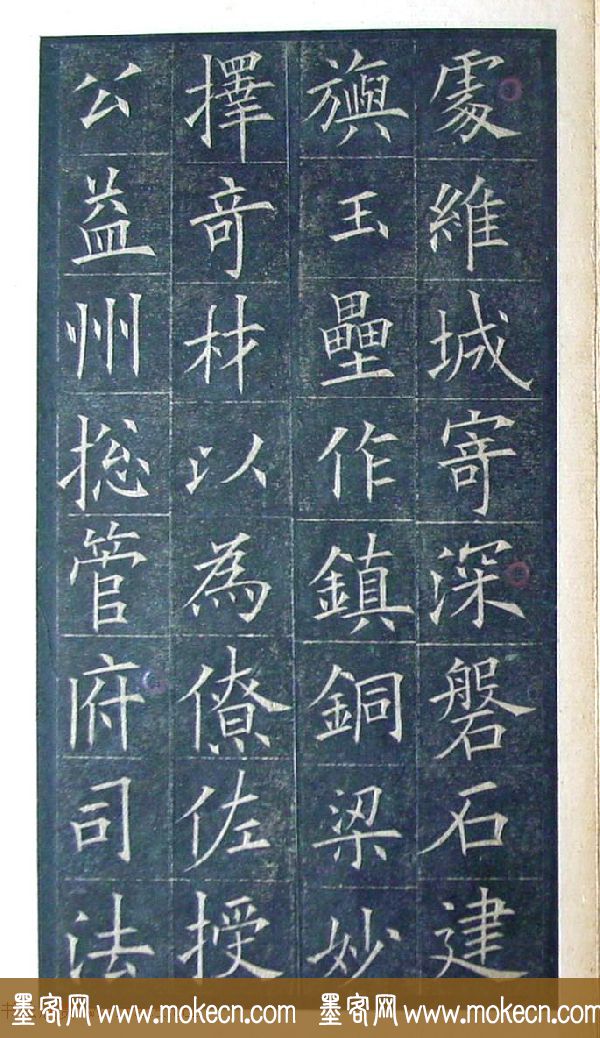 處維城寄深磐石建
旟玉壘作鎮銅梁妙
擇奇材以為僚佐授
公益州捴管府司法
墨客网 www.mokecn.com 墨客网 www.mokecn.com